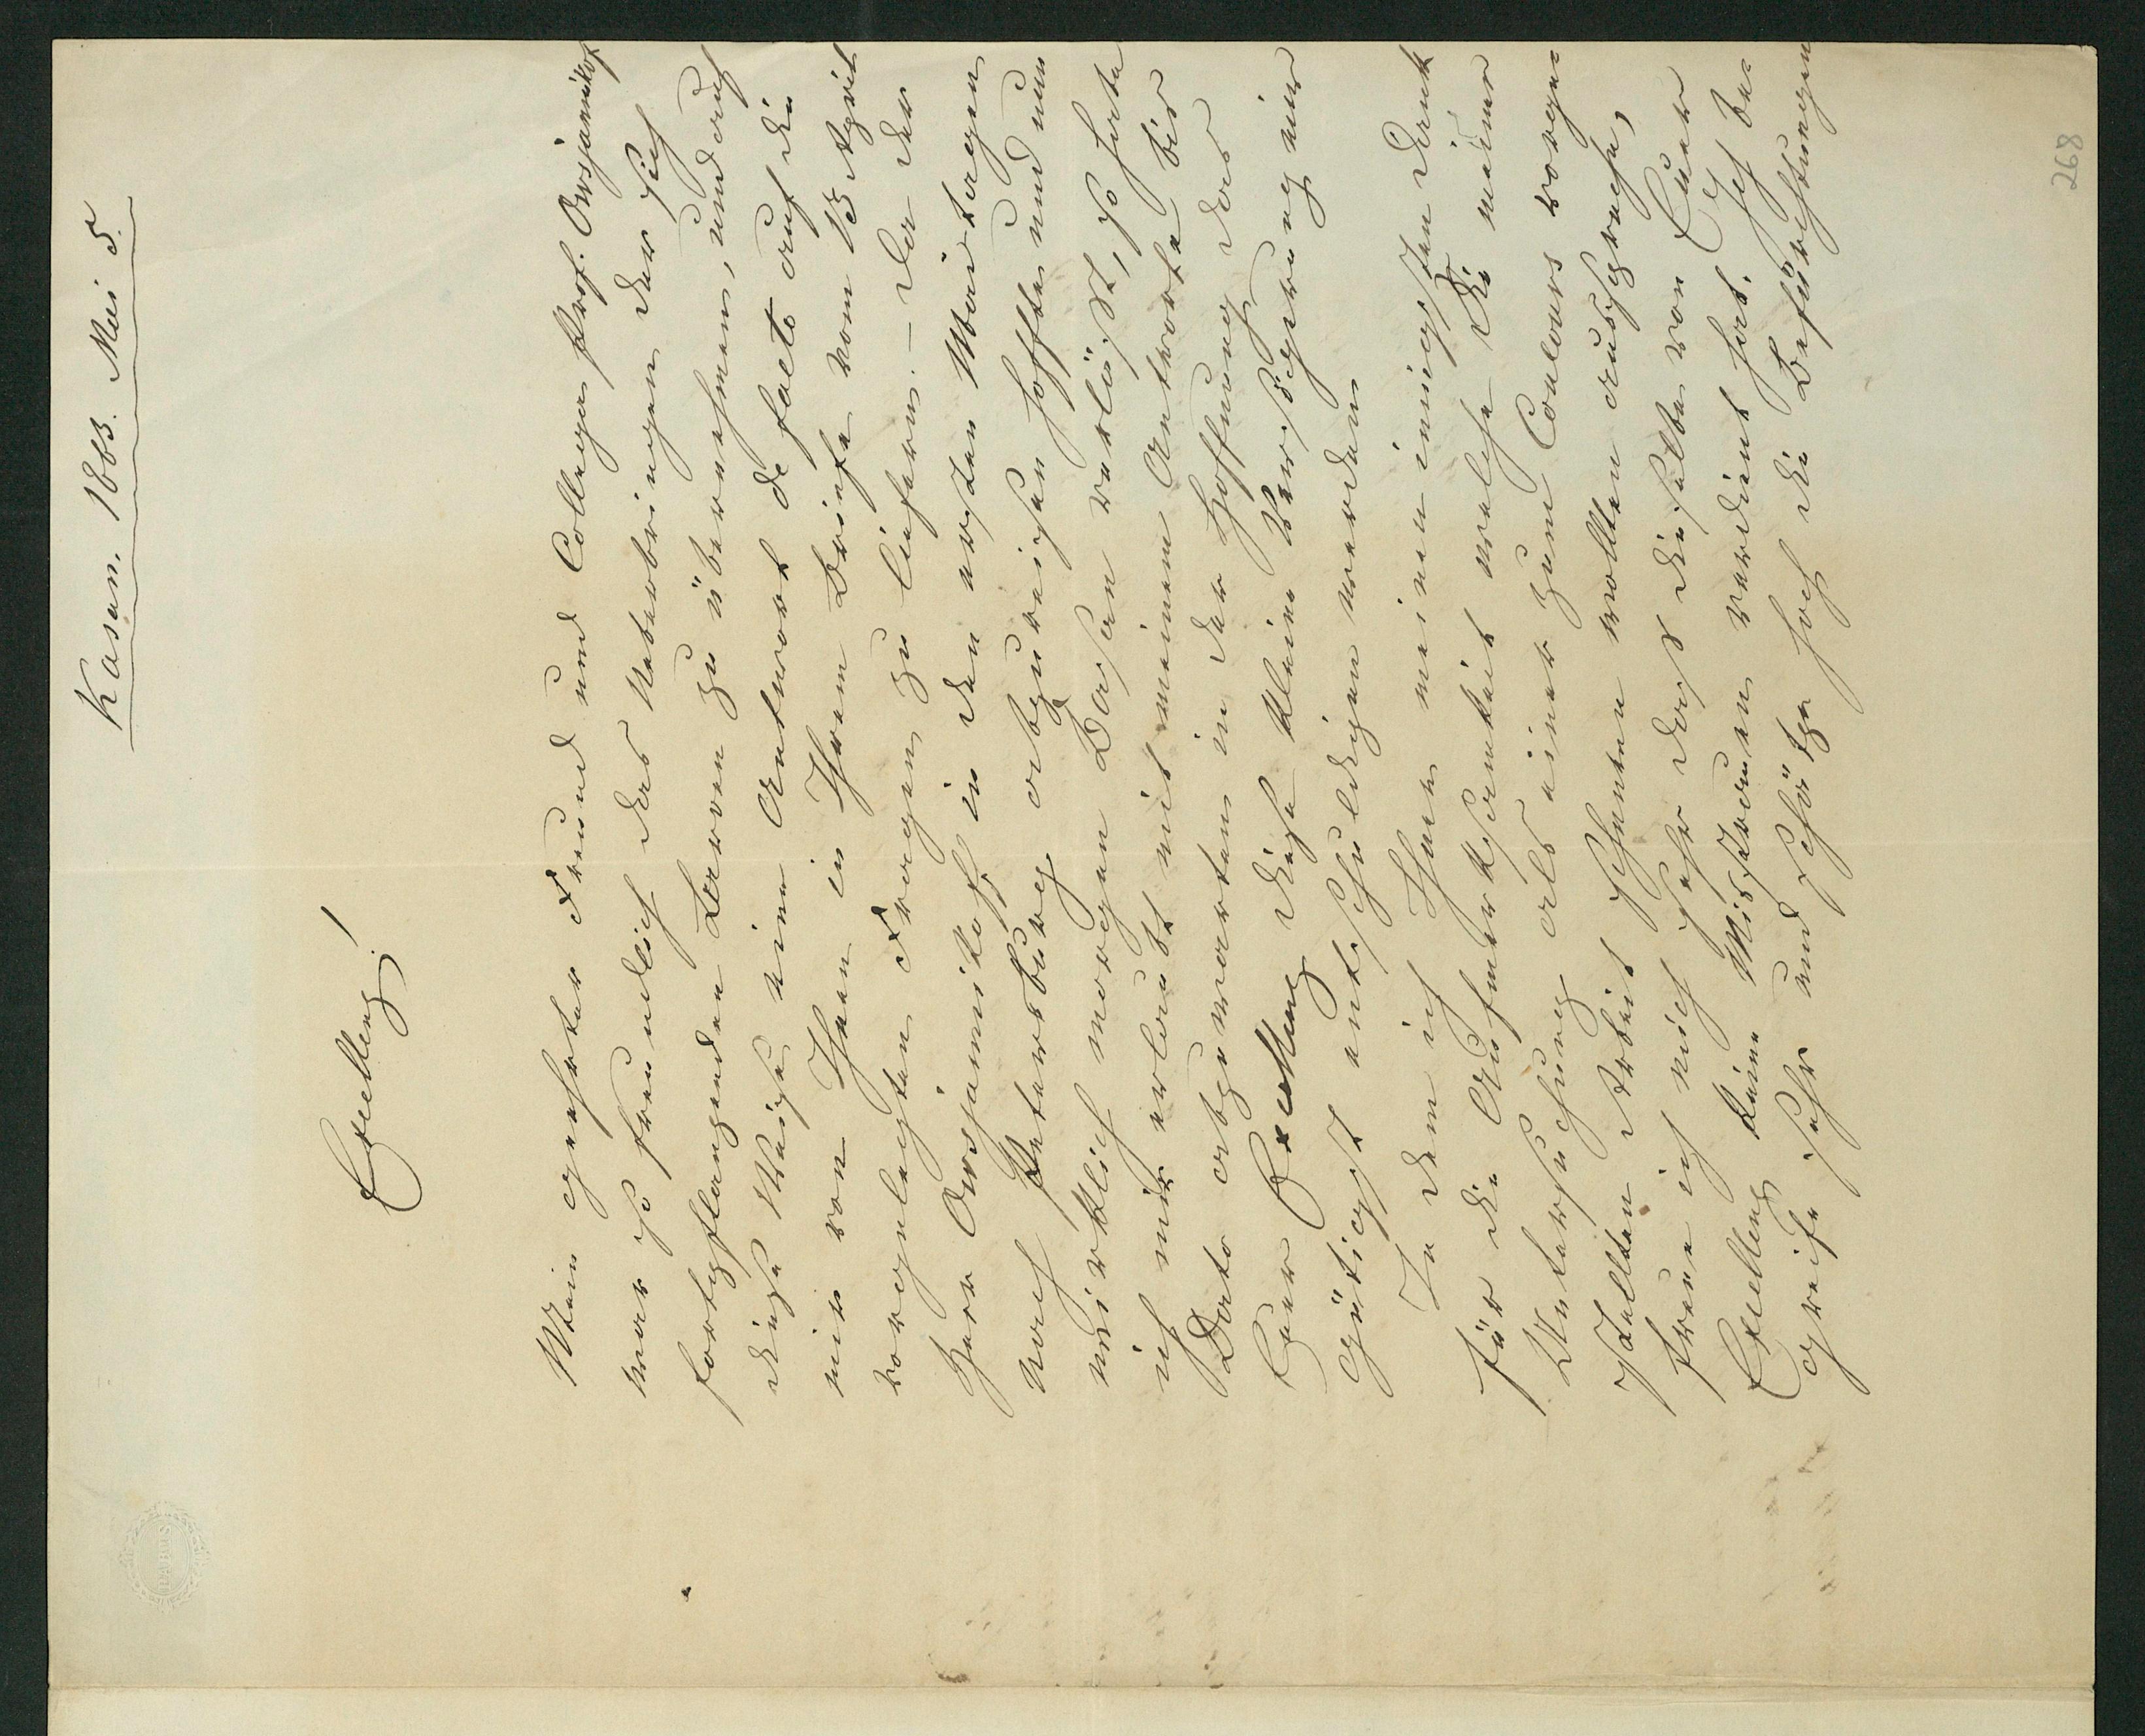 Kasan. 1863. Mai 5.
Excellenz!
Mein geehrter Freund und College Prof. Owsjanikof
war so freundlich das Ueberbringen der sich
fortpflanzenden Larven zu übernehmen, und auf
diese Weise eine Antwort de facto auf die
mir von Ihnen in Ihrem Briefe vom 15 April
vorgelegten Fragen zu liefern. – Da der
Herr Owsjannikoff in den ersten Maitagen
nach Petersburg abzureisen hoffte und nun
wirklich morgen Kasan verlässt, so habe
ich mir erlaubt mit meinem Antworte bis
Dato abzuwarten in der Hoffnung das
Euer Excellenz diese kleine Verzögerung mir
gütigst entschuldigen werden
In dem ich Ihnen meinen innigsten Dank
für die Aufmerksamkeit welche Sie meiner
Untersuchung als einer zum Concours vorge=
stellten Arbeit schenken wollten ausspreche,
freue ich mich sehr dass dieselbe von Euer
Excellenz keine Misstrauen verdient hat. Ich be=
greife sehr und schätze hoch die Befürchtungen
268